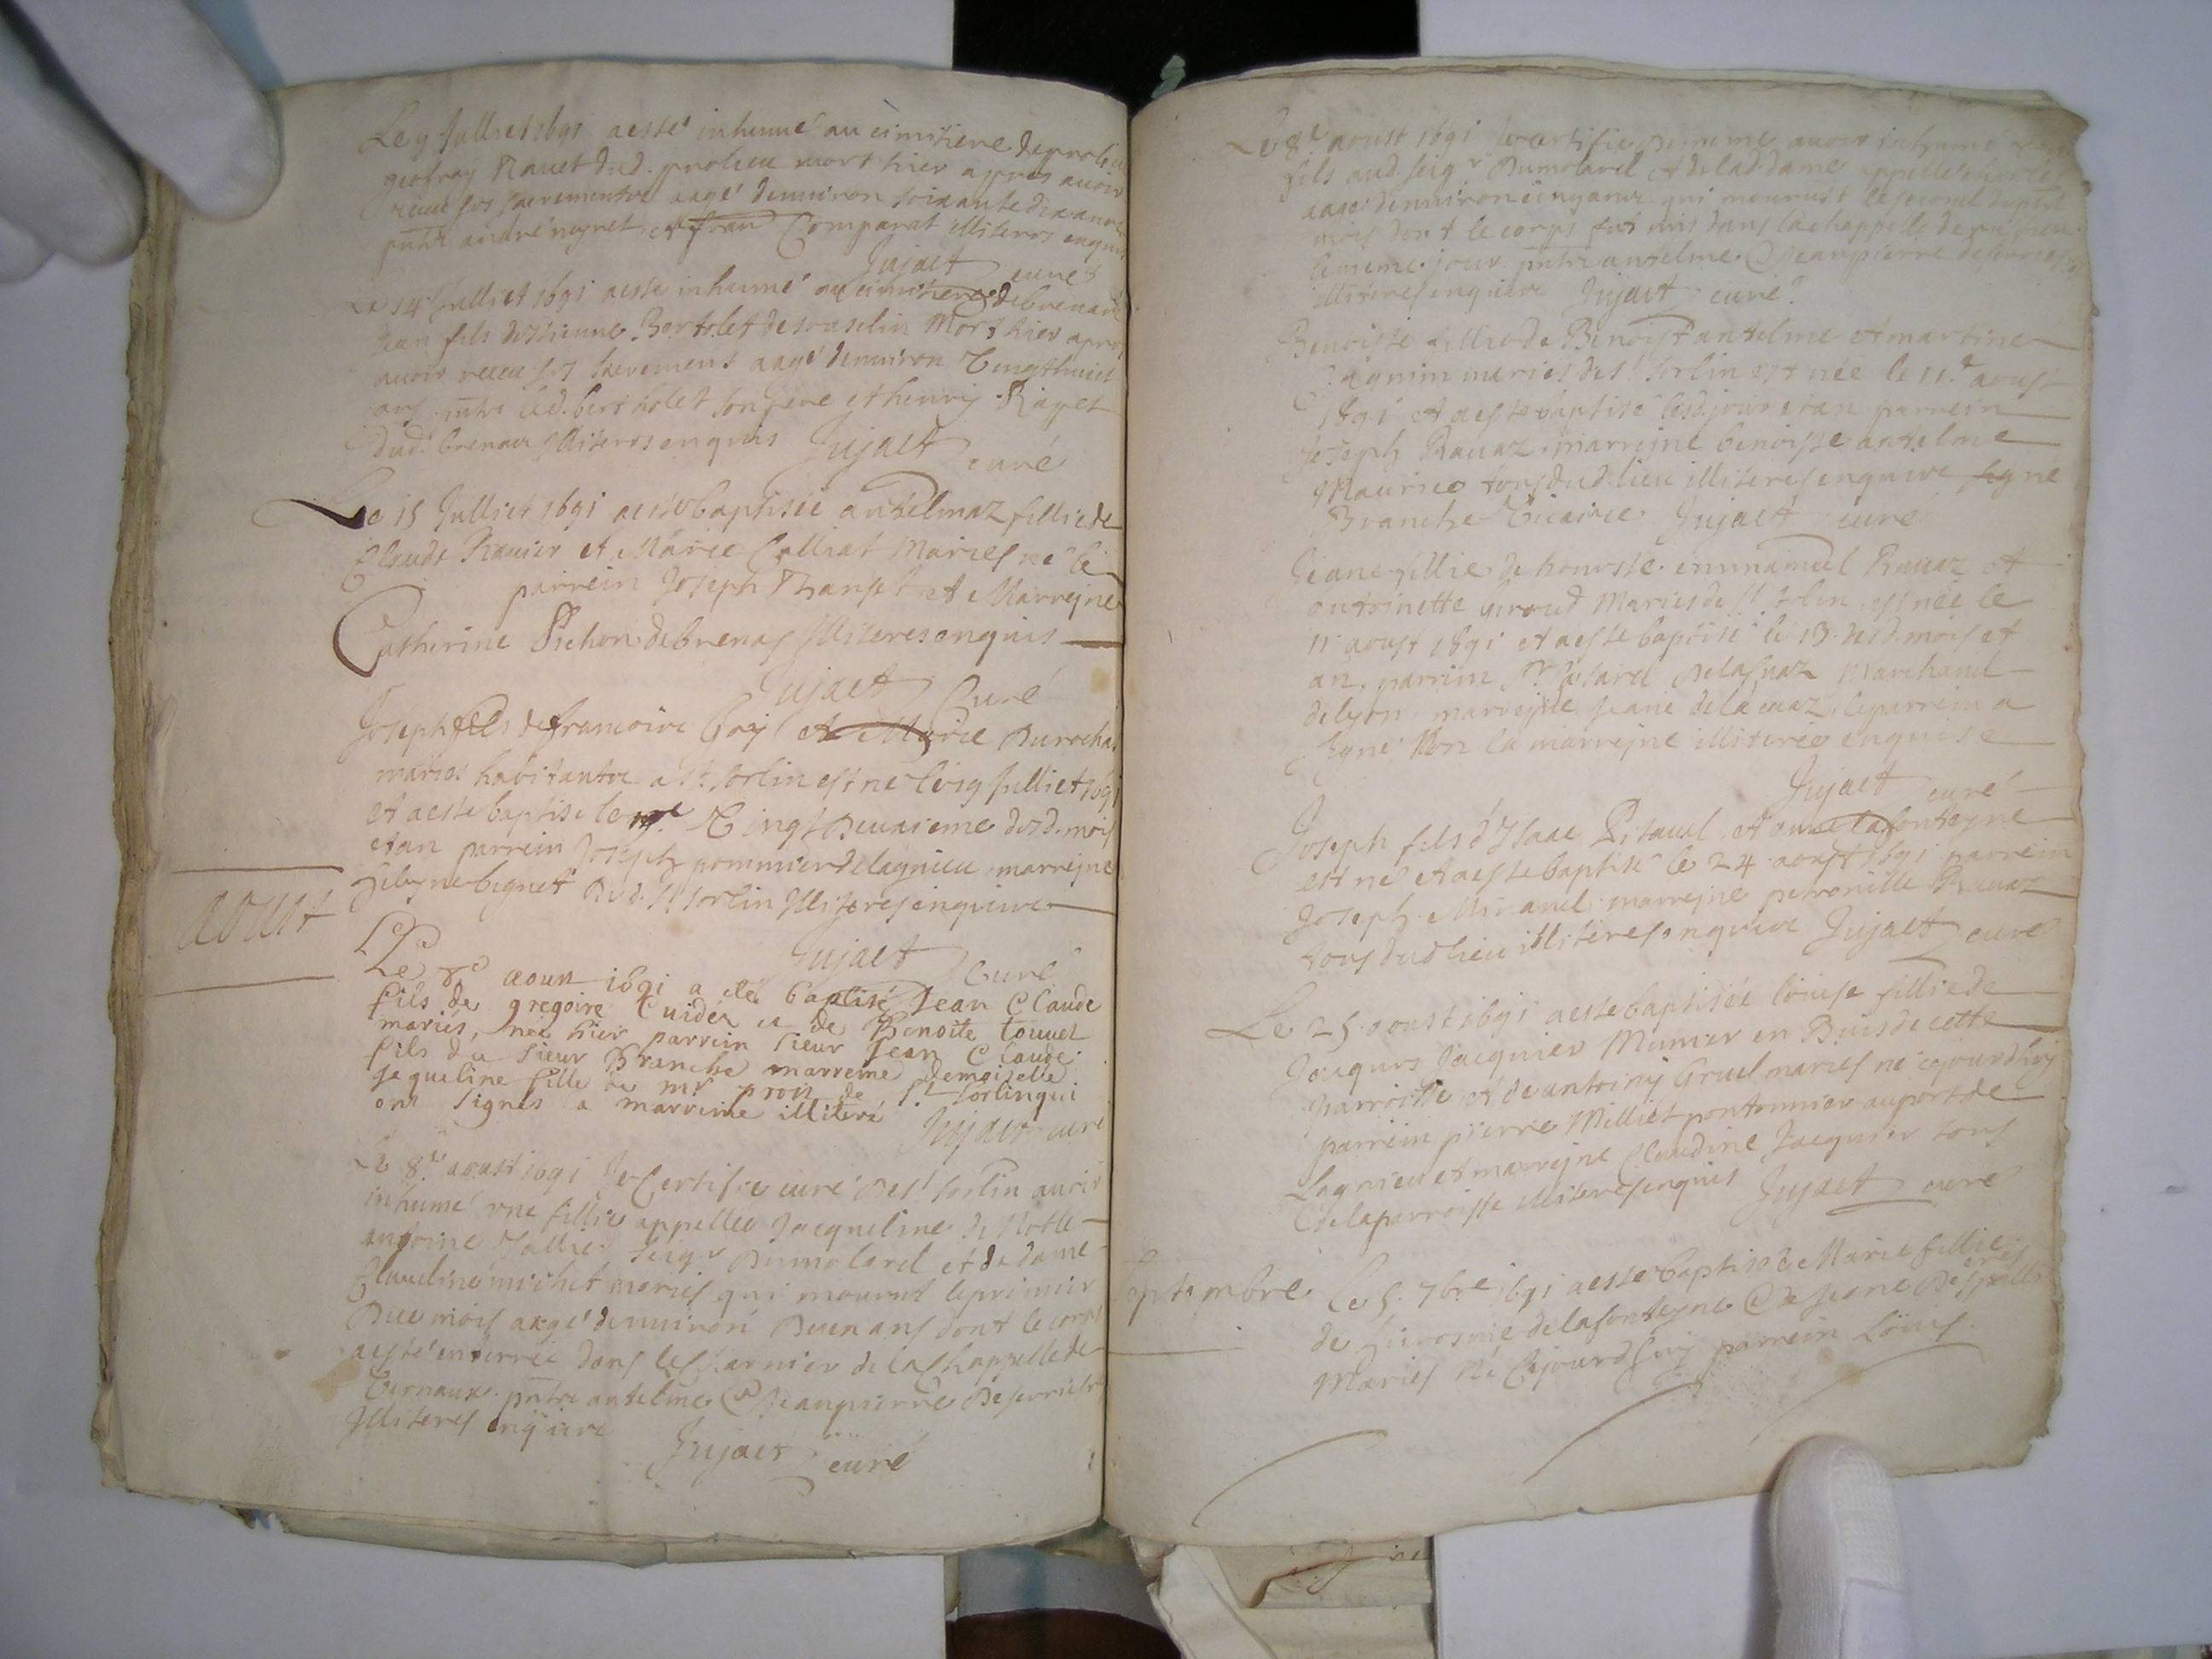 Le 9 Julliet 1691 a esté inhumé au cimitiere de prolieu
geofray Rauet dud. prolieu mort hier apres auoir
receu ses sacrementz aagé denuiron soixante dix ans
pntz andré et fran Comparat illiteres enquis
Jujaet curé
Le 14 Julliet 1691 a esté inhumé au cimitiere de brenaz
Jean fils destienne Bertolet de mort hier apres
auoir receu ses sacrements aagé denuiron Vingthuict
ans pntz led. bertholet son frere et henry Rapet
dud. brenaz illiteres enquis Jujaet curé
Le 15 Julliet 1691 a esté baptisée antelmaz fillie de
Claude Rauier et Marie Calliat Mariés né le
parrein Joseph et Marreyne
Catherine Pichon de brenas illiteres enquis
Jujaet Curé
Joseph fils de francoire boy et Marie Durochat
mariés habitantz a St. Sorlin est né le 19 Julliet 1691
et a esté baptisé le Vingt Deuxieme desd. mois
et an parrein Joseph pommier de lagnieu marreyne
bignet Dud. St. Sorlin illiteres enquire
Jujaet Curé
aoust
Le 8e aoun 1691 a eté baptisé Jean Claude
fils de gregoire Cuider et de Benoite touuet
mariés, né hier parrein sieur Jean Claude
fils du sieur Branche marreine demoiselle
Jaqueline fille de mr. pron de St. Sorlin qui
ont signés a marreine illiteré
Jujaet curé
Le 8e aoust 1691 Je Certifie curé de St. Sorlin auoir
inhumé une fillie appellee Jacqueline de Noble
antoine Seigr Dumolarel et de dame
Claudine michet mariés qui mourut le premier
Du mois aagé denuiron Deux ans dont le corps
a esté enterrée dans le charnier de la Chappelle de
Vernaux pntz antelme & Jean pierre Deserriere
Illiteres enquire Jujaet curé
Le 8e aoust 1691 Je certifie de meme auoir inhumé
fils aud. seigr Dumolarel et de lad. dame appellé charles
aage denuiron cinq ans qui mourust le second dupnt
mois dont le corps fut mis dans la chappelle de
le meme jour pntz antelme & Jean pierre deserriere
illiteres enquire Jujaet curé
Benoiste fillie de Benoist antelme et martine
agnin mariés de St. Sorlin est née le 11e aoust
1691 et a esté baptisé lesd. jour et an parrein
Joseph Rauaz marreyne benoiste antelme
Maurice tous dud. lieu illiteres enquire signé
Branche Vicaire Jujaet curé
Jeane fillie de honeste emmanuel Rauaz et
antoinette giroud Mariés de St. Sorlin est née le
11 aoust 1691 et a esté baptisé le 13 desd. mois et
an. parrein Sr. Cesard Delasuaz Marchand
de lyon marreyne Jeane de la cuaz le parrein a
signé Non la marreyne illiterée enquise
Jujaet curé
Joseph fils d'Isaac Pitaud et anne lafonteyne
est né et a esté baptisé le 24 aoust 1691 parrein
Joseph Miraud marreyne petronille Rauaz
tous dud. lieu illiteres enquire Jujaet curé
Le 25 aoust 1691 a esté baptisée louise fillie de
Jacques Jacquier Munier en Buis de cette
parroisse et de antoiny Gruel mariés né cejourdhuy
parrein pierre Milliet pontonnier au port de
Lagnieu et marreyne Claudine Jacquier tous
de la parroisse illiteres enquis Jujaet curé
septembre
Le 5. 7bre 1691 a esté baptisée Marie fillie
de de lafonteyne & de Jeane
Mariés né Cejourdhuy parrein Louis